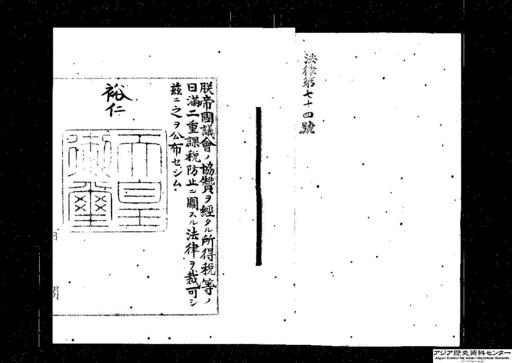 法律第七十四號
朕帝國議會ノ協贊ヲ經タル所得稅等ノ
日滿二重課稅防止ニ關スル法律ヲ裁可シ
茲ニ之ヲ公布セシム
裕仁
天皇
御璽
アジア歴史資料センター
Japan Center for Asian Historical Records